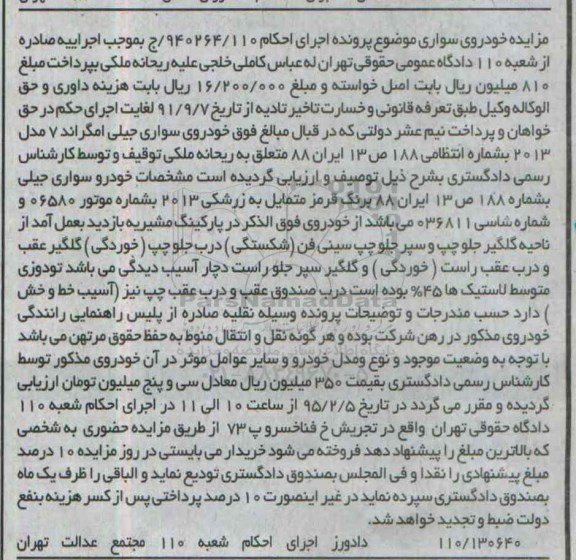 مزایده خودروی سواری موضوع پرونده اجرای احکام ۹۴۰۲۶۴/۱۱۰/ج بموجب اجراییه صادره
از شعبه ۱۱۰ دادگاه عمومی حقوقی تهران له عباس کاملی خلجی علیه ریحانه ملکی بپرداخت مبلغ
۸۱۰ میلیون ریال بابت اصل خواسته و مبلغ ۱۶/۲۰۰/۰۰۰ ریال بابت هزینه داوری و حق
الوکاله وکیل طبق تعرفه قانونی و خسارت تاخیر تادیه از تاریخ ۹۱/۹/۷ لغایت اجرای حکم در حق
خواهان و پرداخت نیم عشر دولتی که در قبال مبالغ فوق خودروی سواری جیلی امگراند ۷ مدل
۲۰۱۳ بشماره انتظامی ۱۸۸ ص ۱۳ ایران ۸۸ متعلق به ریحانه ملکی توقیف و توسط کارشناس
رسمی دادگستری بشرح ذیل توصیف و ارزیابی گردیده است مشخصات خودرو سواری جیلی
بشماره ۱۸۸ ص ۱۳ ایران ۸۸ برنگ قرمز متمایل به زرشکی ۲۰۱۳ بشماره موتور ۰۶۵۸۰ و
شماره شاسی ۰۳۶۸۱۱ می باشد از خودروی فوق الذکر در پارکینگ مشیریه بازدید بعمل آمد از
ناحیه گلگیر جلو چپ و سپر جلو چپ سینی فن (شکستگی) درب جلو چپ (خوردگی) گلگیر عقب
و درب عقب راست (خوردگی) و گلگیر سپر جلو راست دچار آسیب دیدگی می باشد تودوزی
متوسط لاستیک ها ۴۵% بوده است درب صندوق عقب و درب عقب چپ نیز (آسیب خط و خش
) دارد حسب مندرجات و توضیحات پرونده وسیله نقلیه صادره از پلیس راهنمایی رانندگی
خودروی مذکور در رهن شرکت بوده و هر گونه نقل و انتقال منوط به حفظ حقوق مرتهن می باشد
با توجه به وضعیت موجود و نوع ومدل خودرو و سایر عوامل موثر در آن خودروی مذکور توسط
کارشناس رسمی دادگستری بقیمت ۳۵۰ میلیون ریال معادل سی و پنج میلیون تومان ارزیابی
گردیده و مقرر می گردد در تاریخ ۹۵/۲/۵ از ساعت ۱۰ الی ۱۱ در اجرای احکام شعبه ۱۱۰
دادگاه حقوقی تهران واقع در تجریش خ فناخسرو پ ۷۳ از طریق مزایده حضوری به شخصی
که بالاترین مبلغ را پیشنهاد دهد فروخته می شود خریدار می بایستی در روز مزایده ۱۰ درصد
مبلغ پیشنهادی را نقدا و فی المجلس بصندوق دادگستری تودیع نماید و الباقی را ظرف یک ماه
بصندوق دادگستری سپرده نماید در غیر اینصورت ۱۰ درصد پرداختی پس از کسر هزینه بنفع
دولت ضبط و تجدید خواهد شد.
۱۱۰/۱۳۰۶۴۰ دادورز اجرای احکام شعبه ۱۱۰ مجتمع عدالت تهران
ParsNamadData